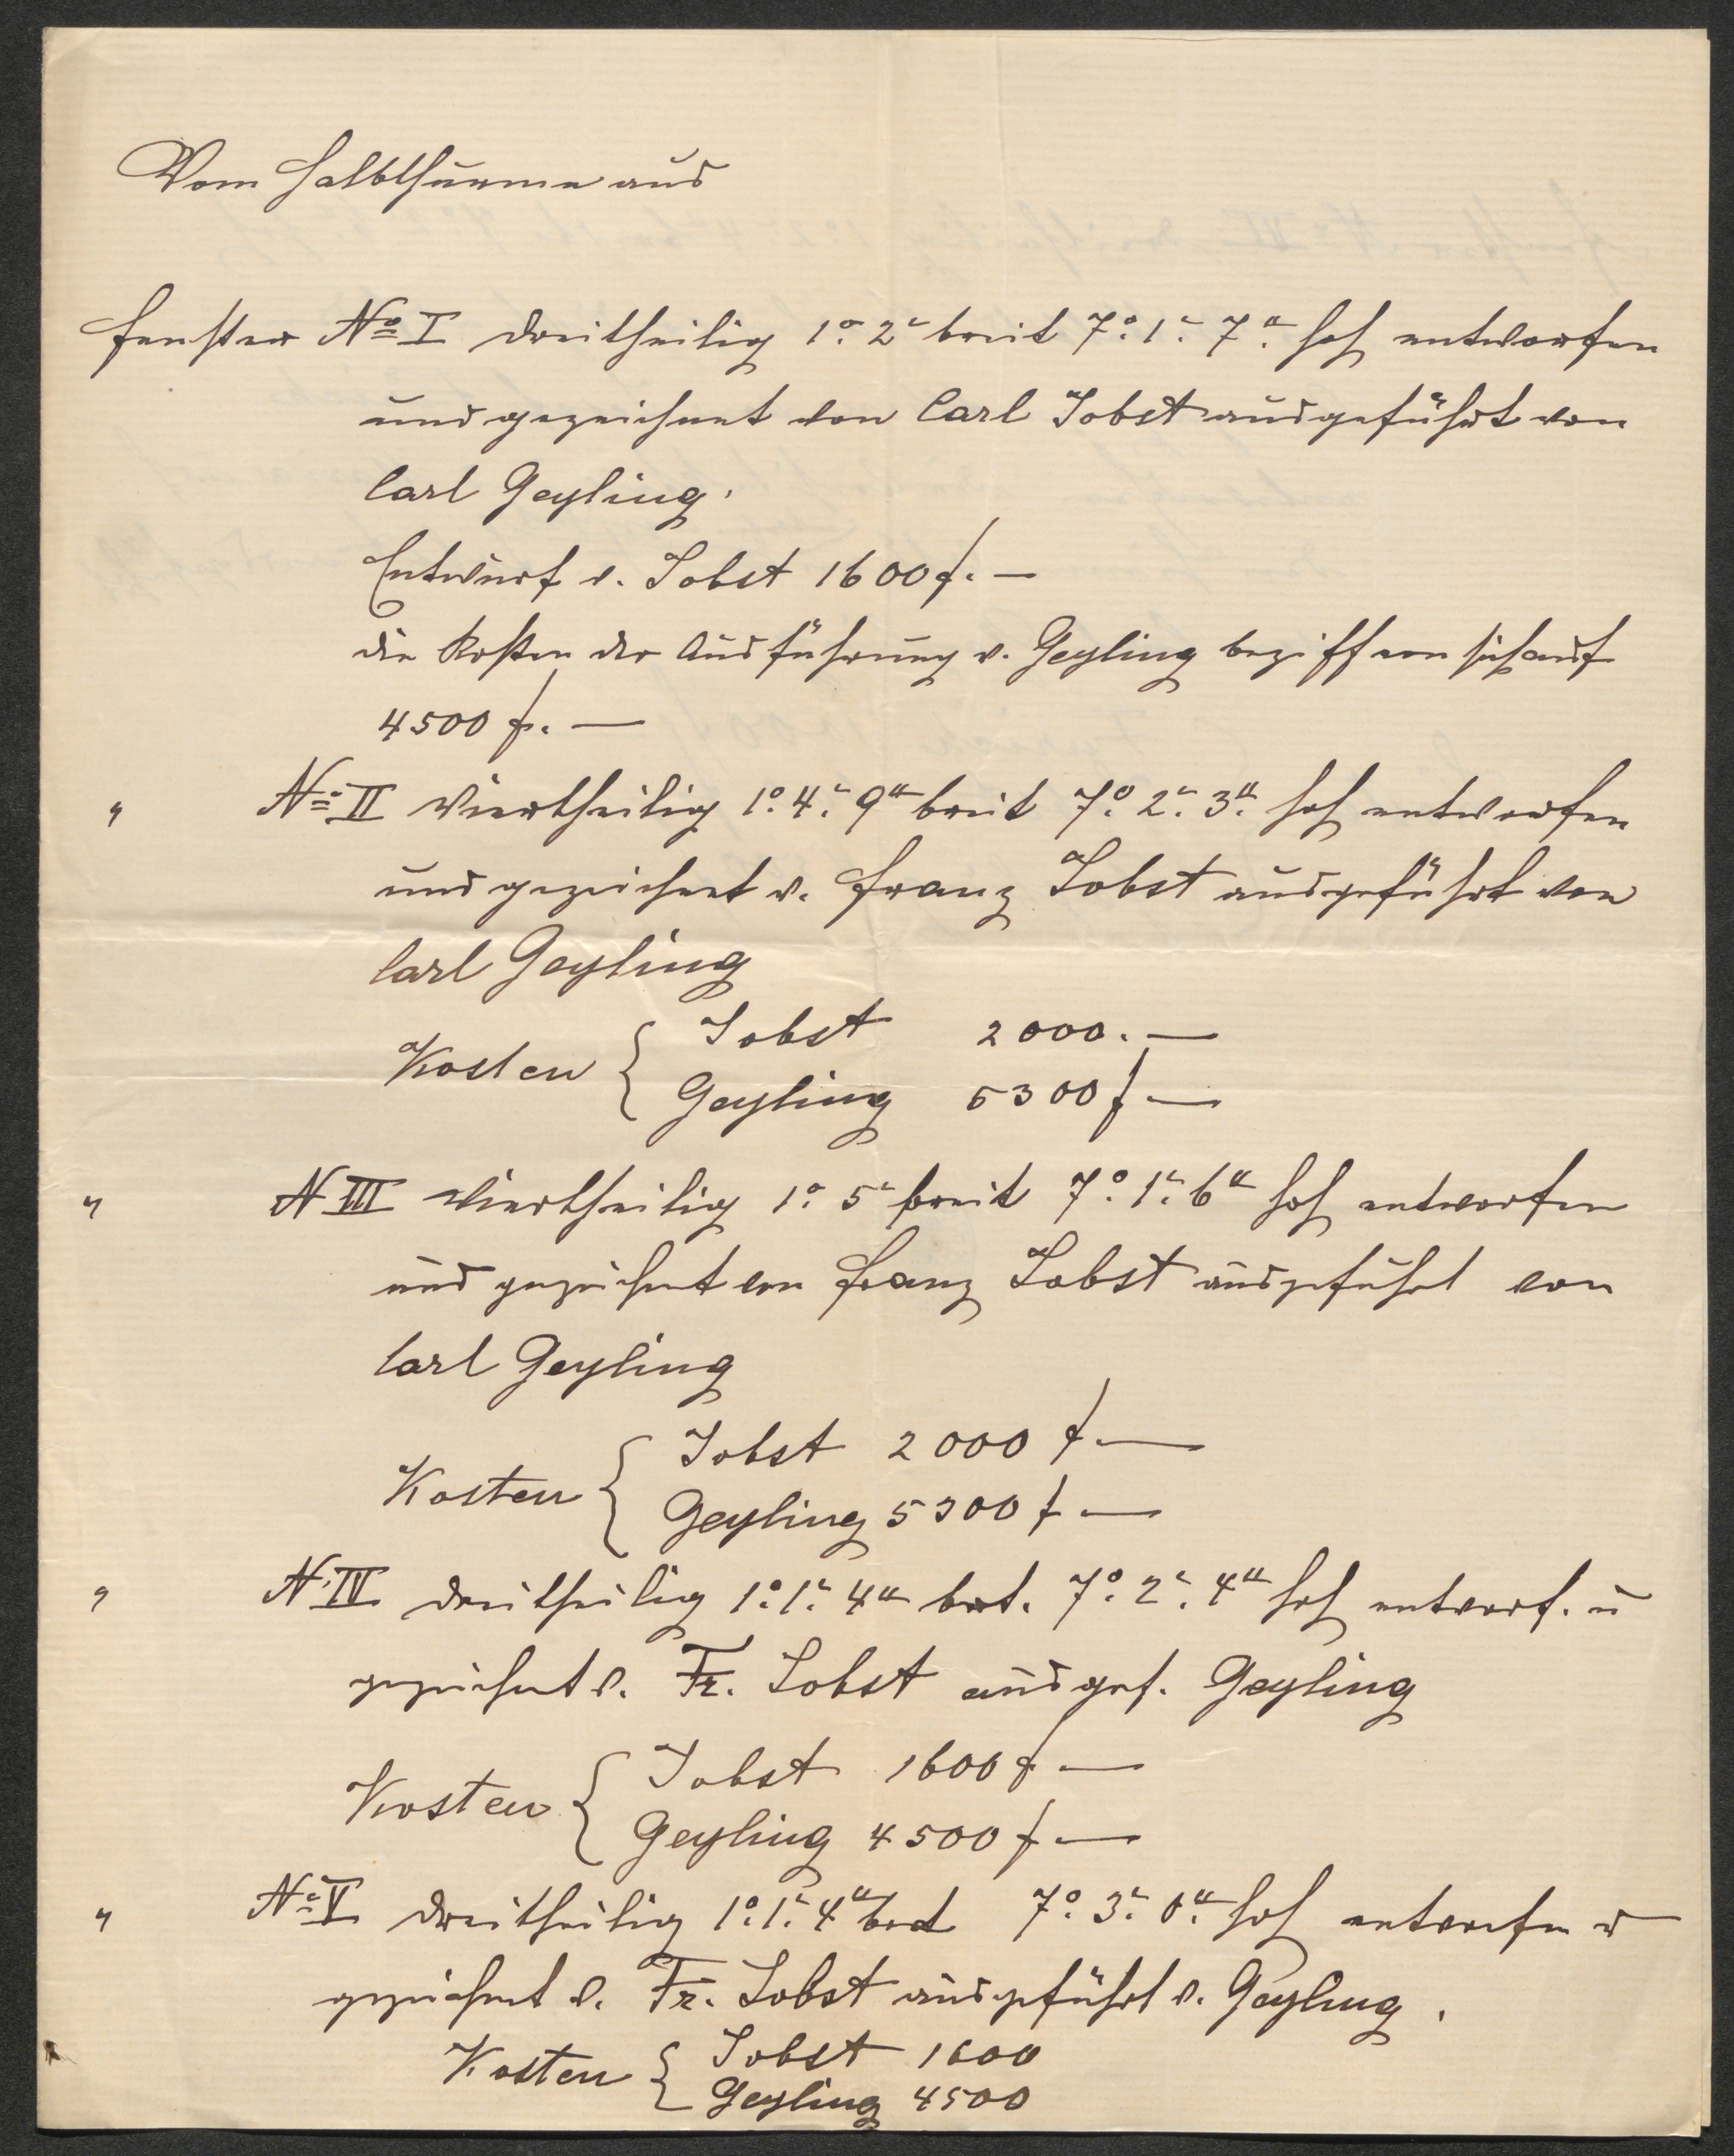 Vom Halbthurme aus
Fenster No I dreitheilig 1° 2' breit 7° 1' 7" hoch entworfen
und gezeichnet von Carl Jobst ausgeführt von
Carl Geyling.
Entwurf v. Jobst 1600 f. —
die Kosten der Ausführung v. Geyling beziffern sich auf
4500 f. —
" No II Viertheilig 1° 4' 9" breit 7° 2' 3" hoch entworfen
und gezeichnet v. Franz Jobst ausgeführt von
Carl Geyling
Kosten { Jobst 2000. —
Geyling 5300 f —
" N III Viertheilig 1° 5' breit 7° 1' 6" hoch entworfen
und gezeichnet von Franz Jobst ausgeführt von
Carl Geyling
Kosten { Jobst 2000 f. —
Geyling 5300 f —
" N. IV dreitheilig 1° 1' 4" brt. 7° 2' 4" hoch entworf. u
gezeichnet v. Fr. Jobst ausgef. Geyling
Kosten { Jobst 1600 f —
Geyling 4500 f —
" No V dreitheilig 1° 1' 4" brt 7° 3' 0" hoch entworfen u
gezeichnet v. Fr. Jobst ausgeführt v. Geyling.
Kosten { Jobst 1600
Geyling 4500